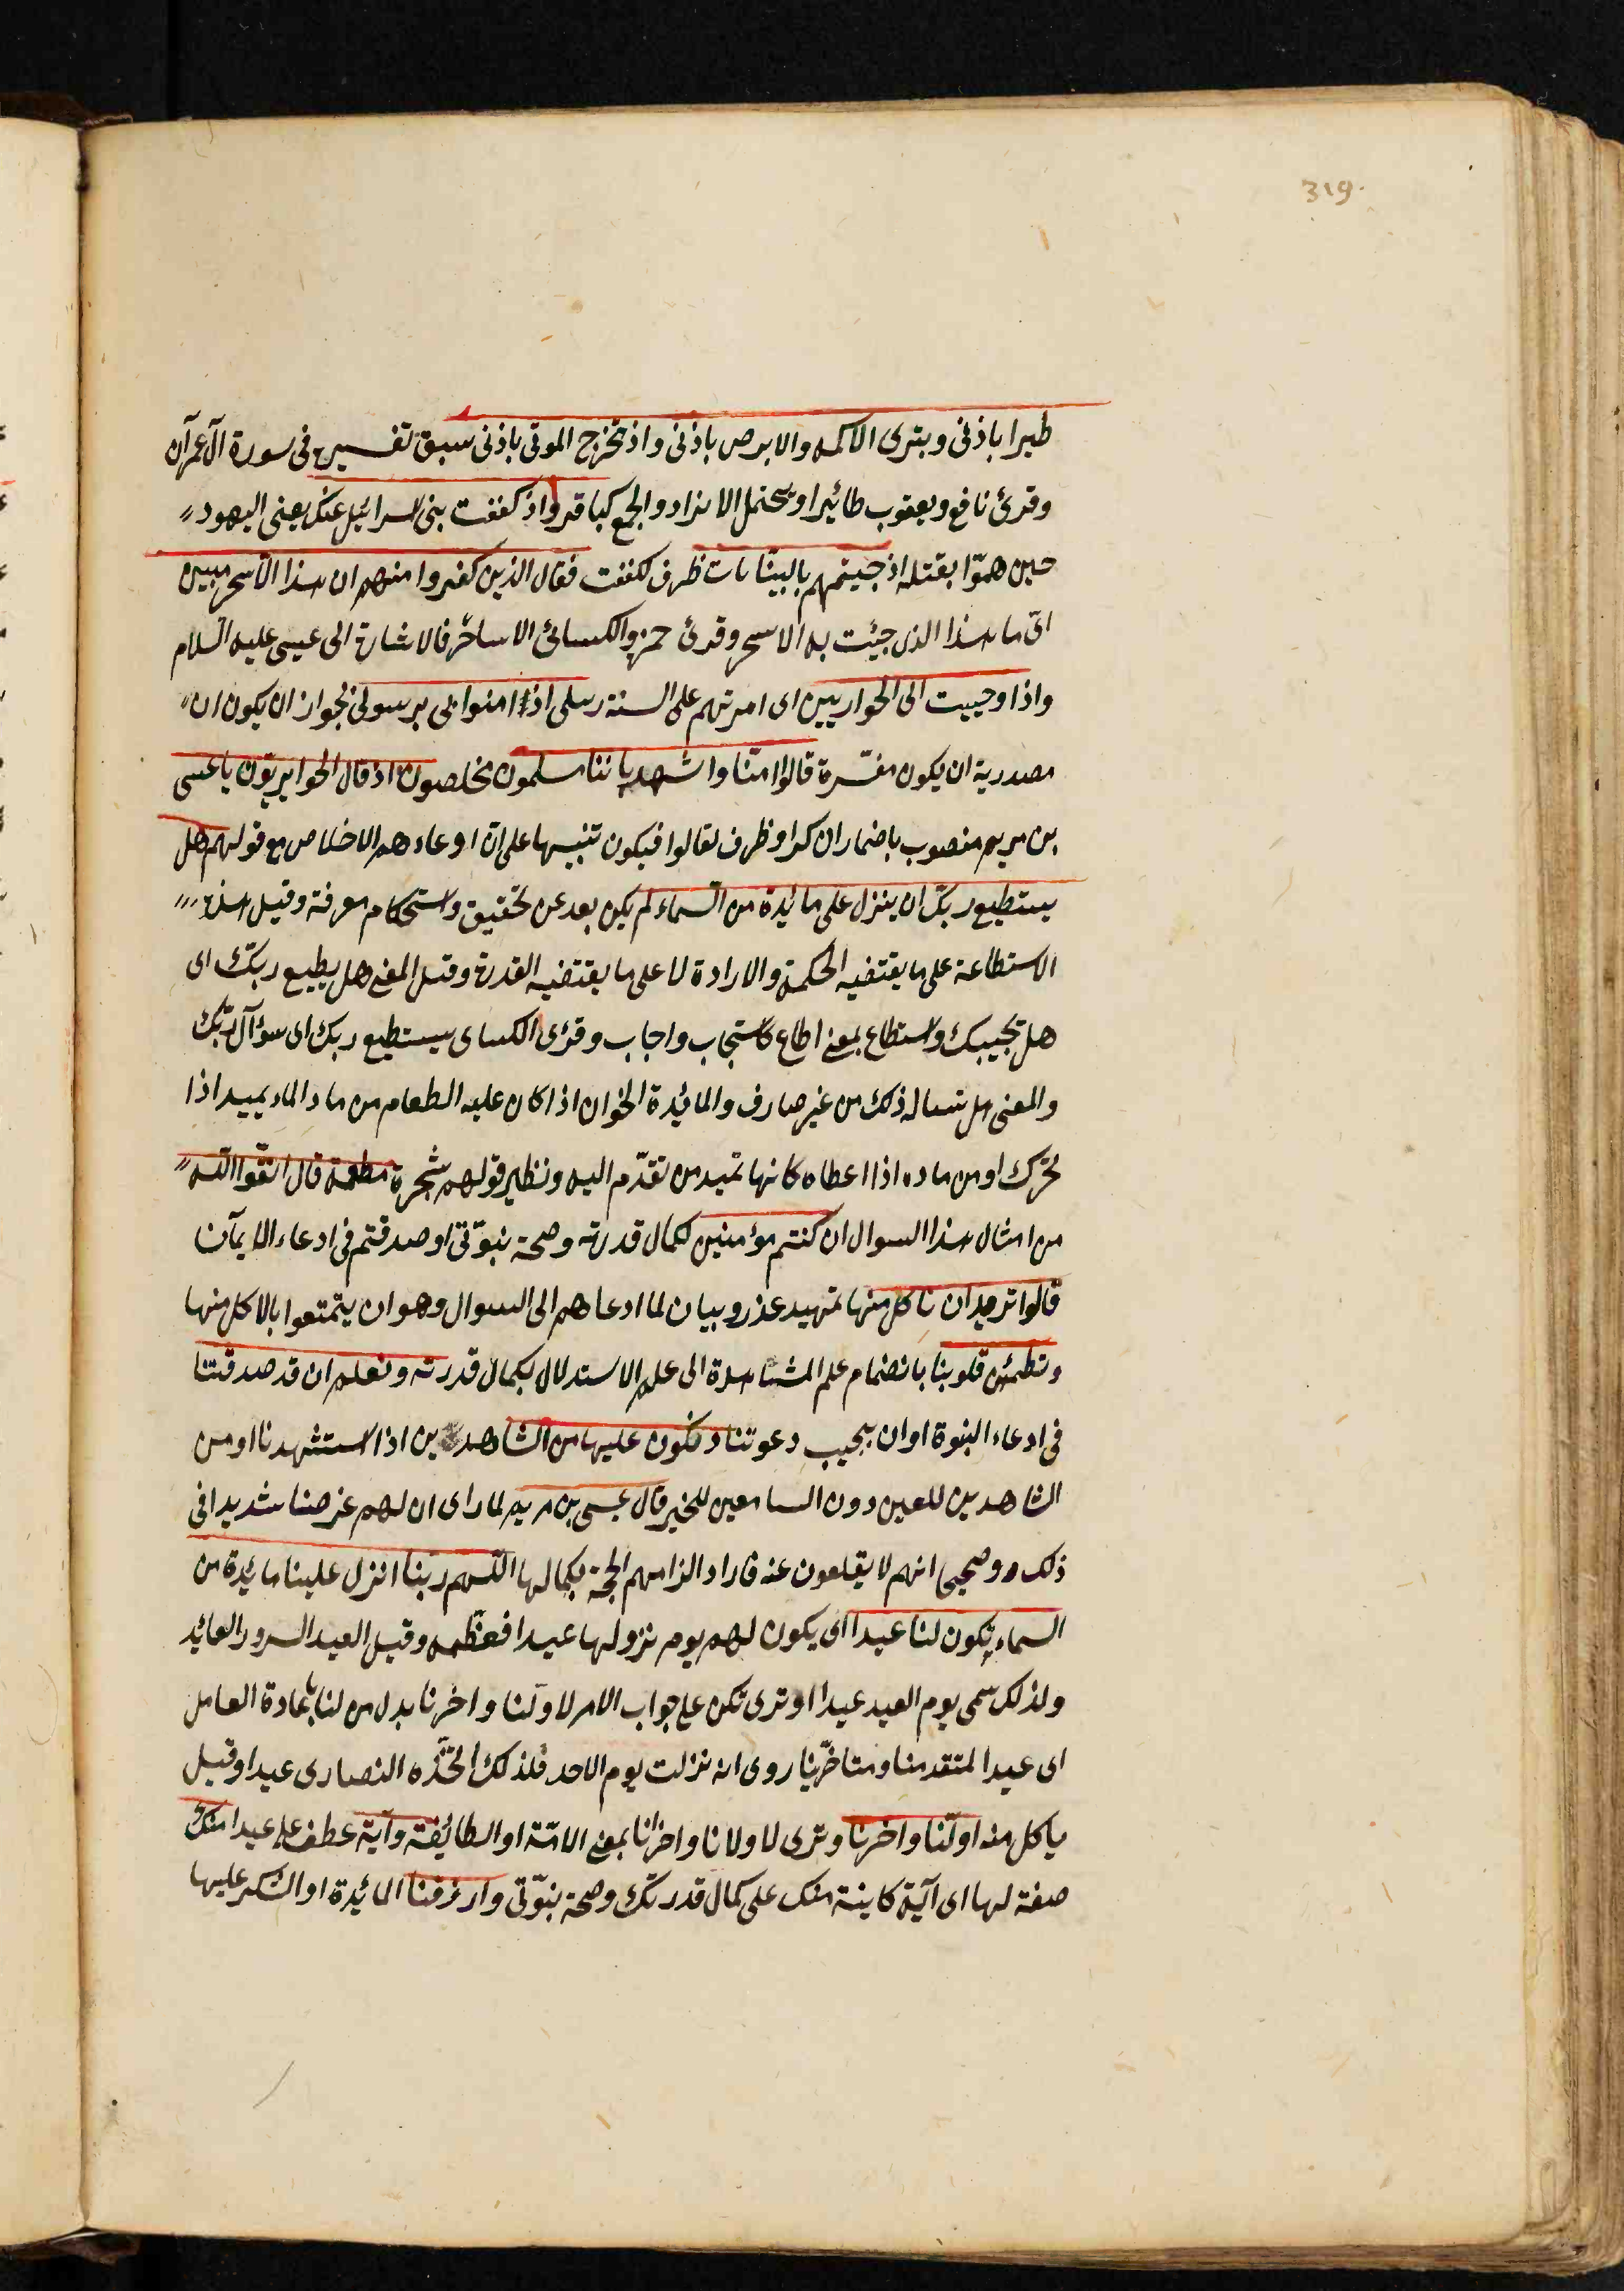 319
طيرا باذنى وبترى الاكمه والابرص باذنى واذ تخرج الموتى باذنى سبق تفسيره فى سورة آل عمرآن
وقرئ نافع ويعقوب طائيرا ويحتمل الافراد والجمع كباقر واذ كففت بنى اسرائيل عنك يعنى اليهود
حين همّوا بقتله اذ جيتهم بالبينات ظرف لكففت فقال الذين كفروا منهم ان هذا الا سحر مبين
اى ما هذا الذى جيئت به الا سحر وقرئ حمزه والكسائى الا ساحر فالاشارة الى عيسى عليه السلام
واذ اوحييت الى الحواريين اى امرتهم على السنة رسلى اذ امنوا بى برسولى يجوز ان يكون ان
مصدرية ان يكون مفسّرة قالوا امنّا واشهد باننا مسلمون مخلصون اذ قال الحواريّون ياعيسى
بن مريم منصوب باضمار ان كر او ظرف لقالوا فيكون تنبيها على ان ادعاءهم الاخلاص مع قولهم هل
يستطيع ربّك ان ينزل على مائيدة من السّماء لم يكن بعد عن تحقيق واستحكام معرفة وقيل هذه
الاستطاعة على ما يقتضيه الحكمة والارادة لا على ما يقتضيه القدرة وقيل المعنى هل يطيع ربّك اى
هل يجيبك واستطاع بمعنى اطاع كاستجاب واجاب وقرئ الكساى يستطيع ربك اى سوآل ربّك
والمعنى هل تساله ذلك من غير صارف والمائيدة الخوان اذا كان عليه الطعام من ماد الماء يميد اذا
تحرّك او من ماده اذا اعطاه كانها تميد من تقدّم اليه ونظير قولهم شجرة مطعمة قال اتّقوا الله
من امثال هذا السوال ان كنتم مؤمنين لكمال قدرته وصحة بنوّتى او صدقتم فى ادعاء الايمآن
قالوا تريد ان ناكل منها تمهيد عذر وبيان لما ادعاهم الى السوال وهو ان يتمتعوا بالاكل منها
وتطمئن قلوبنا بانضمام علم المشاهدة الى علم الاستدلال بكمال قدرته ونعلم ان قد صدقتنا
فى ادعاء البنوة او ان يجيب دعوتنا ونكون عليها من الشاهدين اذا استشهدنا او من
الشاهدين للعين دون السامعين للخير قال عيسى بن مريم لما راى ان لهم غرضا شديدا فى
ذلك وصحيى انهم لا يقلعون عنه فاراد الزامهم الحجة بكمالها اللهم ربّنا انزل علينا مائيدة من
السماء تكون لنا عيدا اى يكون لهم يوم نزولها عيدا فعظمه وقيل العيد السرور العائيد
ولذلك سمى يوم العيد عيدا او ترى تكن على جواب الامر لاوّلنا واخرنا بدل من لنا باعادة العامل
اى عيدا لمتقدمنا ومتاخّرينا روى انه نزلت يوم الاحد فلذلك اتخّذه النصارى عيدا وقيل
ياكل منه اوّلنا واخرنا وترى لاولانا واخرانا بمعنى الامّة او الطائيفة وآية عطف على عيدا منك
صفة لها اى آية كاينة منك على كمال قدرتك وصحة بنوّتى وارزقنا المائيدة او الشكر عليها